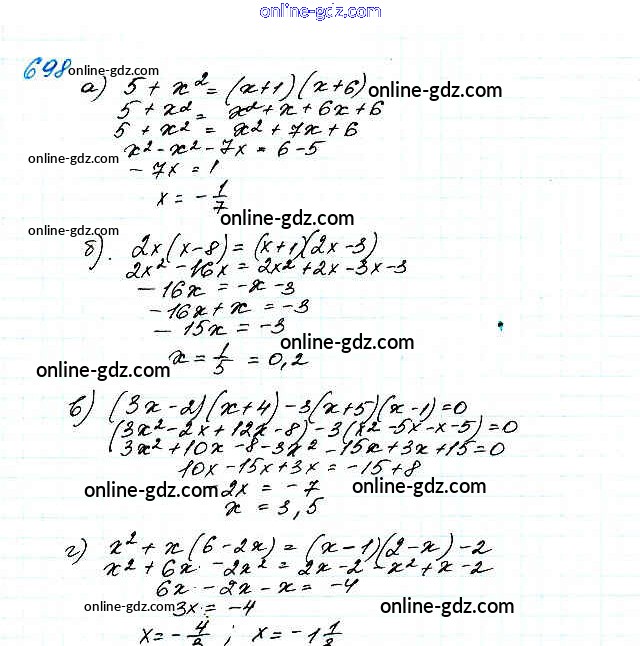 online-gdz.com
698 online-gdz.com
а) 5 + x² = (x+1)(x+6) online-gdz.com
5 + x² = x² + x + 6x + 6
5 + x² = x² + 7x + 6
online-gdz.com x² - x² - 7x = 6 - 5
- 7x = 1
x = - 1/7
online-gdz.com
online-gdz.com б). 2x(x-8) = (x+1)(2x-3)
2x² - 16x = 2x² + 2x - 3x - 3
- 16x = -x - 3
- 16x + x = -3
- 15x = -3
online-gdz.com
online-gdz.com x = 1/5 = 0,2
в) (3x-2)(x+4) - 3(x+5)(x-1) = 0
(3x² - 2x + 12x - 8) - 3(x² - 5x - x - 5) = 0
3x² + 10x - 8 - 3x² - 15x + 3x + 15 = 0
10x - 15x + 3x = -15 + 8
online-gdz.com 2x = -7 online-gdz.com
x = 3,5
г) x² + x(6-2x) = (x-1)(2-x) - 2
x² + 6x - 2x² = 2x - 2 - x² + x - 2
6x - 2x - x = -4
online-gdz.com 3x = -4 online-gdz.com
x = - 4/3 ; x = -1 1/3